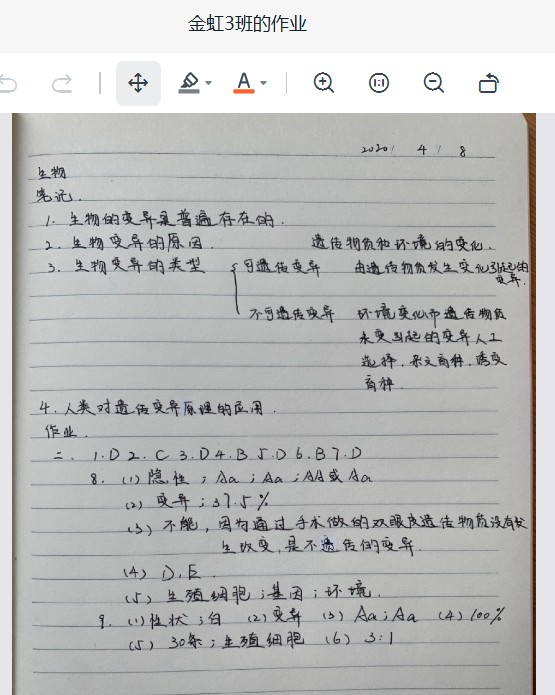 金虹3班的作业
2020/ 4 / 8
生物
笔记.
1. 生物的变异是普遍存在的.
2. 生物变异的原因. 遗传物质和环境的变化.
3. 生物变异的类型 可遗传变异 由遗传物质发生变化引起的
变异.
不可遗传变异 环境变化而遗传物质
未变引起的变异人工
选择. 杂交育种. 诱变
育种.
4. 人类对遗传变异原理的应用.
作业.
二. 1.D 2.C 3.D 4.B 5.D 6.B 7.D
8. (1) 隐性 ; Aa ; Aa ; AA或Aa
(2) 变异 ; 37.5%
(3) 不能, 因为通过手术做的双眼皮遗传物质没有发
生改变, 是不遗传的变异.
(4) D.E.
(5) 生殖细胞 ; 基因 ; 环境.
9. (1) 性状 ; 白 (2) 变异 (3) Aa ; Aa (4) 100%
(5) 30条 ; 生殖细胞 (6) 3:1